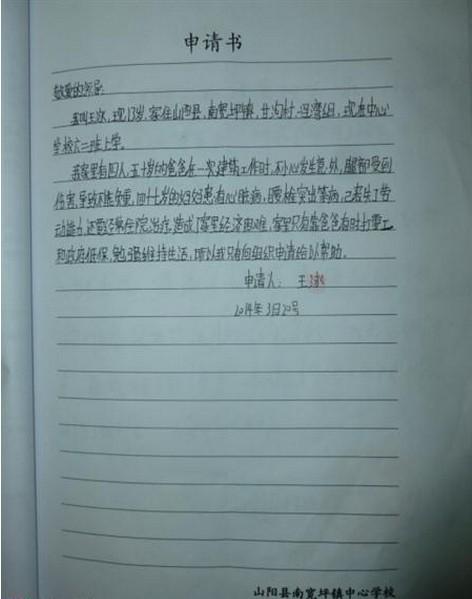 申请书
敬爱的领导:
我叫王冰,现13岁,家住山阳县,南宽坪镇,甘沟村,湾组,现在中心
学校六二班上学。
我家里有四人,五十岁的爸爸在一次建筑工作时,不小心发生意外,腿部受到
伤害,导致不能负重,四十岁的妈妈患有心脏病,腰椎突出等病,已丧失了劳
动能力,还要经常住院治疗,造成了家里经济困难,家里只有靠爸爸有时打零工
和政府低保,勉强维持生活,所以我只有向组织申请给以帮助。
申请人: 王冰
2014年3月20号
山阳县南宽坪镇中心学校